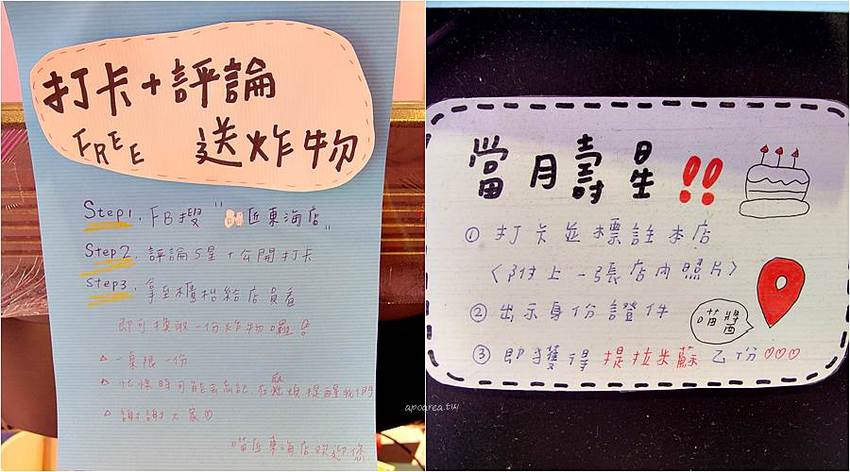 打卡+評論
FREE 送炸物
Step1. FB搜"🐾匠東海店"
Step2. 評論5星+公開打卡
Step3. 拿至櫃枱給店員看
即可換取一份炸物喔!
△一桌限一份
△忙碌時可能會忘記 在麻煩提醒我們
△謝謝大家♡
喵匠東海店歡迎您
當月壽星!!
①打卡並標註本店
<附上一張店內照片>
②出示身份證件
喵醬
③即獲得 提拉米蘇 乙份♡♡♡
apoarea.tw